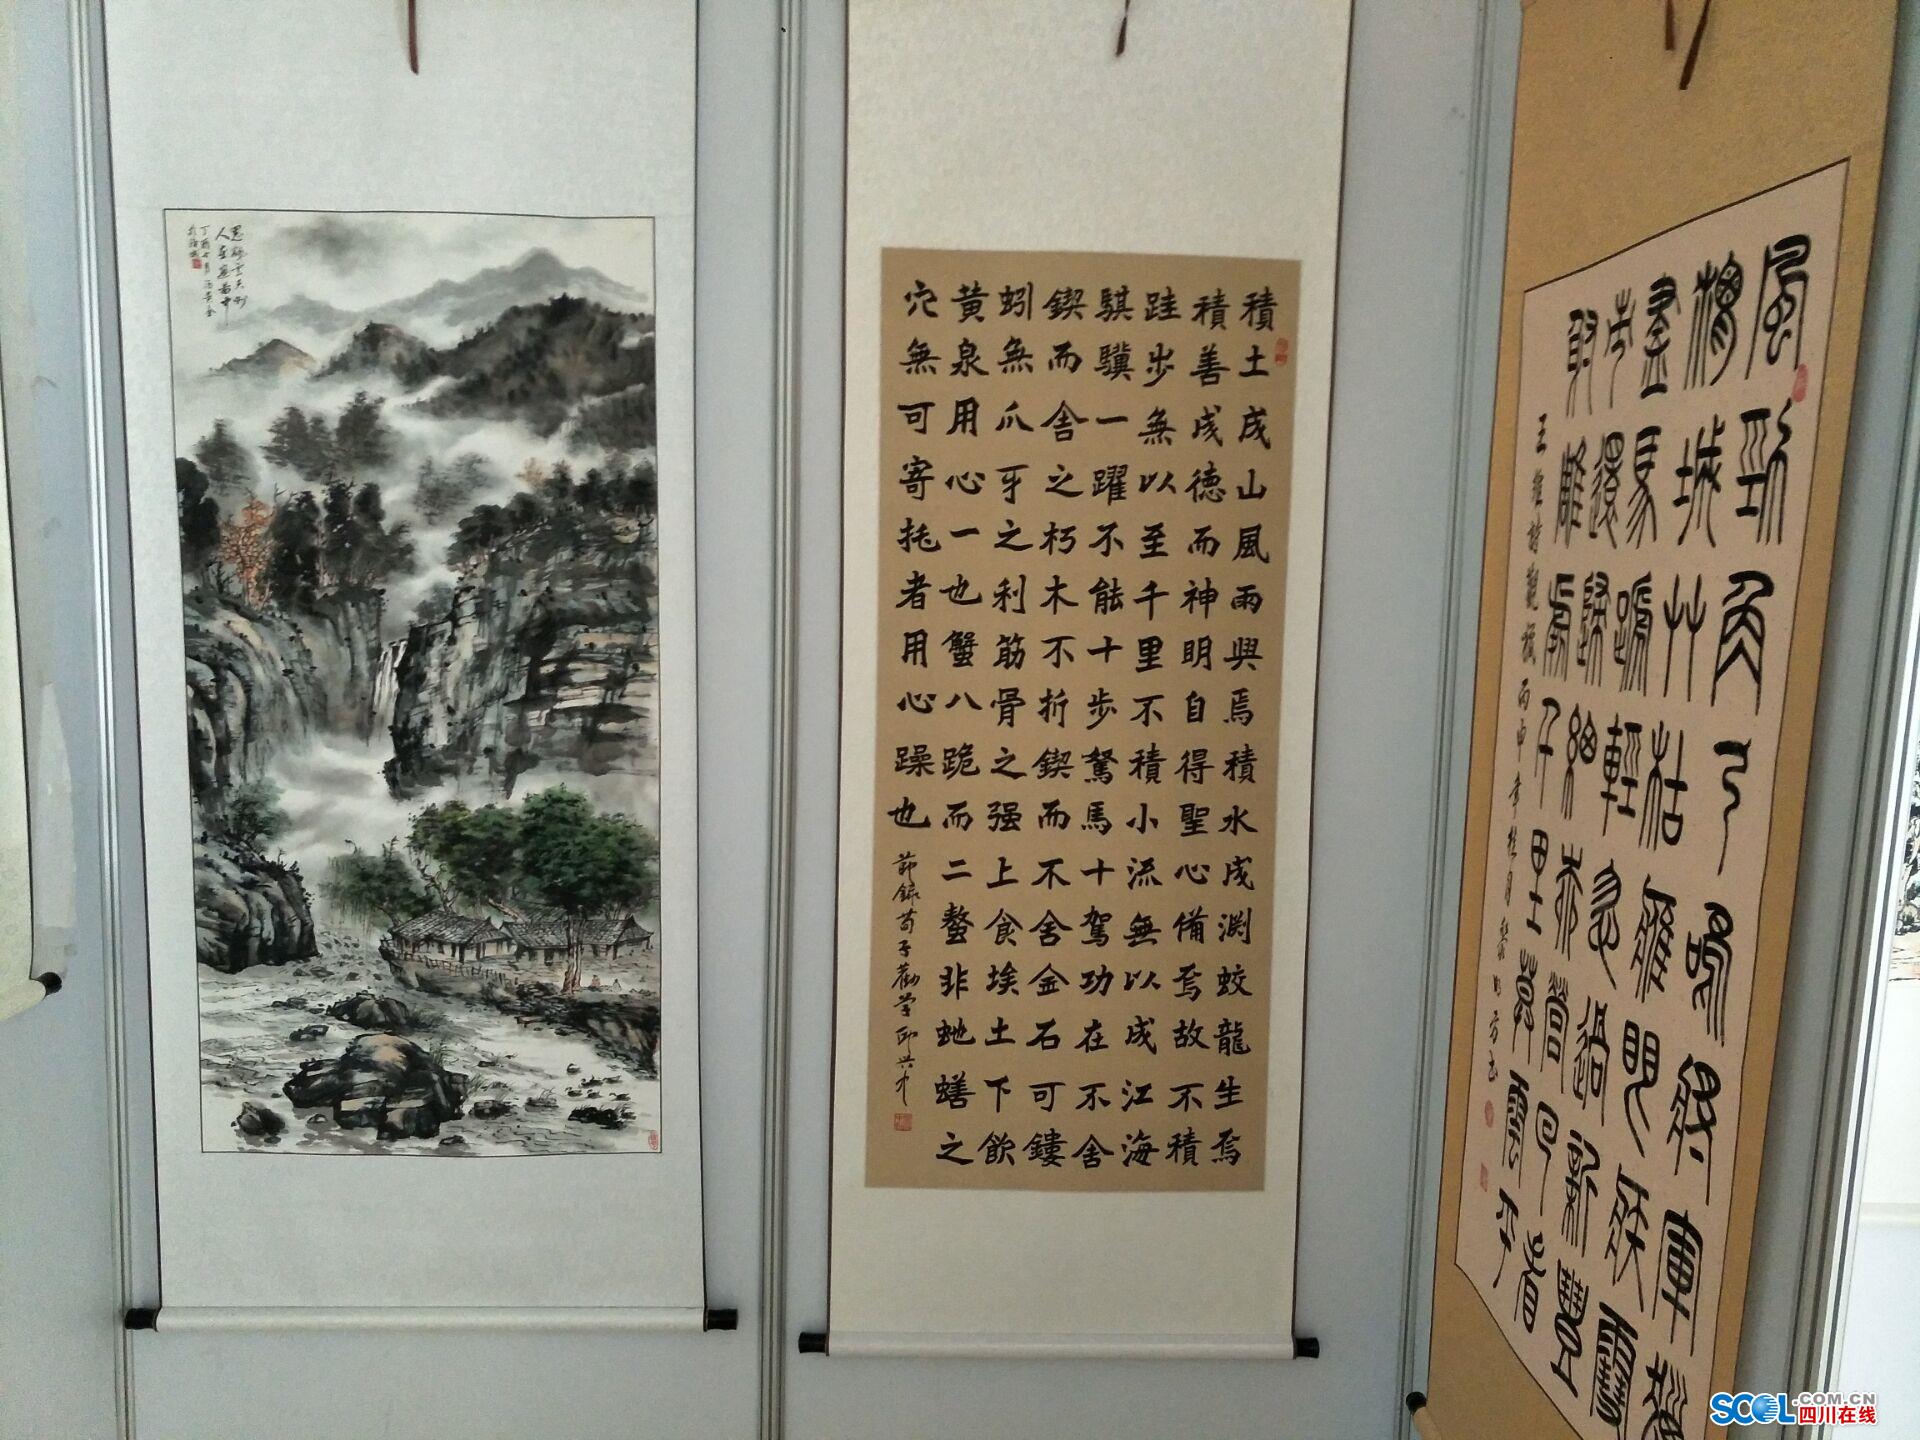 風勁角弓鳴將軍獵
渭城艸枯雁眼疾雪
盡馬蹏輕忽過新豐
市還歸細柳營回看
射雕處千里暮雲平
王維詩觀獵丙申年桂月
積土成山風雨興焉積水成渊蛟龍生焉
積善成德而神明自得聖心備焉故不積
跬步無以至千里不積小流無以成江海
騏驥一躍不能十步駑馬十駕功在不舍
鍥而舍之朽木不折鍥而不舍金石可鏤
蚓無爪牙之利筋骨之强上食埃土下飲
黄泉用心一也蟹八跪而二螯非虵蟮之
穴無可寄托者用心躁也
節錄荀子勸学邱
人在画图中
丁酉七月
SCOL.COM.CN
四川在线